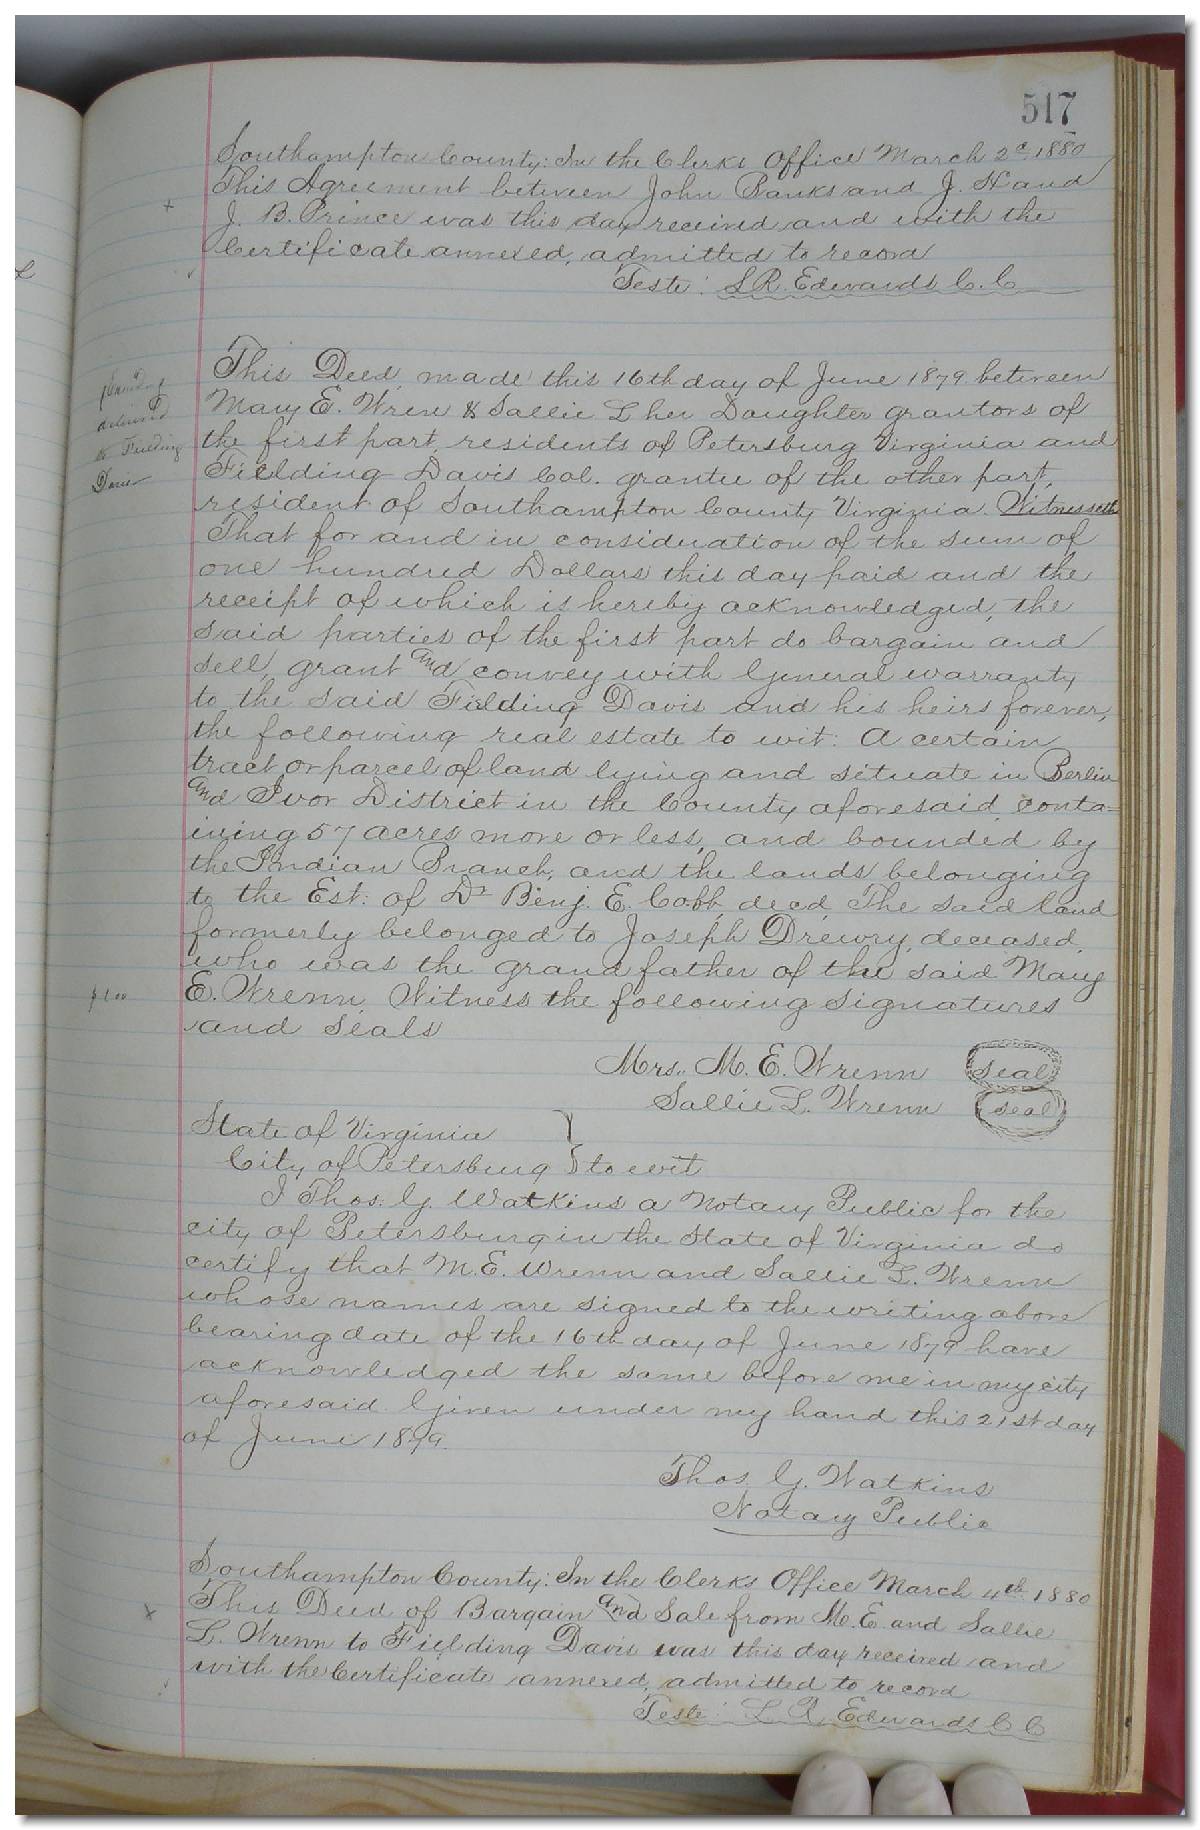 517
Southampton County: In the Clerks Office March 2d 1880
This Agreement between John Banks and J. H and
J. B. Prince was this day received and with the
Certificate annexed, admitted to record
Teste: L R. Edwards C. C
This Deed, made this 16th day of June 1879 between
Mary E. Wren & Sallie L her Daughter grantors of
the first part, residents of Petersburg Virginia and
Fielding Davis Col. grantee of the other part,
resident of Southampton County Virginia. Witnesseth
That for and in consideration of the sum of
one hundred Dollars this day paid and the
receipt of which is hereby acknowledged, the
said parties of the first part do bargain and
sell, grant and convey with General warranty
to the said Fielding Davis and his heirs forever,
the following real estate to wit: A certain
tract or parcel of land lying and situate in Berlin
and Ivor District in the County aforesaid, conta=
ining 57 acres more or less, and bounded by
the Indian Branch, and the lands belonging
to the Est: of Dr Benj. E. Cobb, decd, The said land
formerly belonged to Joseph Drewry, deceased,
who was the grand father of the said Mary
E. Wrenn, Witness the following signatures
and seals
delivered
to Fielding
Davis
$1.00
Mrs. M. E. Wrenn seal
Sallie L. Wrenn seal
State of Virginia
City of Petersburg } to wit
I Thos. G. Watkins a Notary Public for the
city of Petersburg in the State of Virginia do
certify that M. E. Wrenn and Sallie L. Wrenn
whose names are signed to the writing above
bearing date of the 16th day of June 1879 have
acknowledged the same before me in my city
aforesaid. Given under my hand this 21st day
of June 1879.
Thos. G. Watkins
Notary Public
Southampton County: In the Clerks Office March 4th 1880
This Deed of Bargain and Sale from M. E. and Sallie
L. Wrenn to Fielding Davis was this day received and
with the Certificate annexed, admitted to record
Teste: L R. Edwards C C